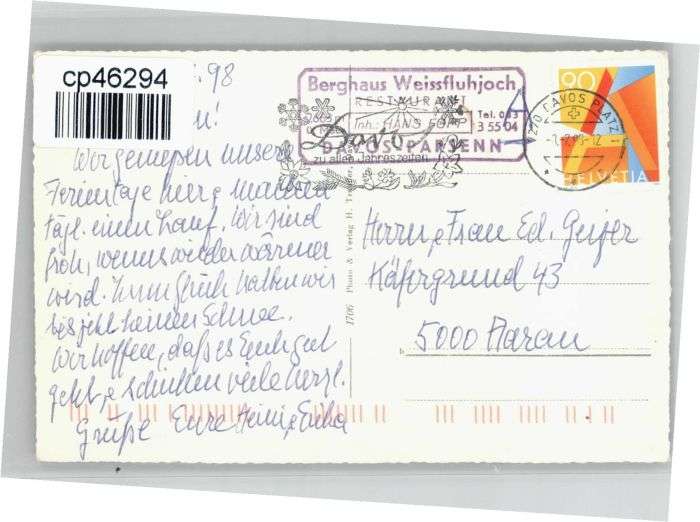 cp46294
98
Berghaus Weissfluhjoch
RESTAURANT
Inh.: HANS
Tel. 083
3 55 04
DAVOS-PARSENN
Davos
zu allen Jahreszeiten
DAVOS PLATZ
90
HELVETIA
Wir geniessen unsere
Ferientage hier & machen
tägl. einen Lauf. Wir sind
froh, wenns wieder wärmer
wird. Zum Glück hatten wir
bis jetzt keinen Schnee.
Wir hoffen, daß es Euch gut
geht & schicken viele herzl.
Grüße Eure Heini & Erika
1706 Photo & Verlag H.
Herrn & Frau Ed. Geijer
Käfergrund 43
5000 Aarau